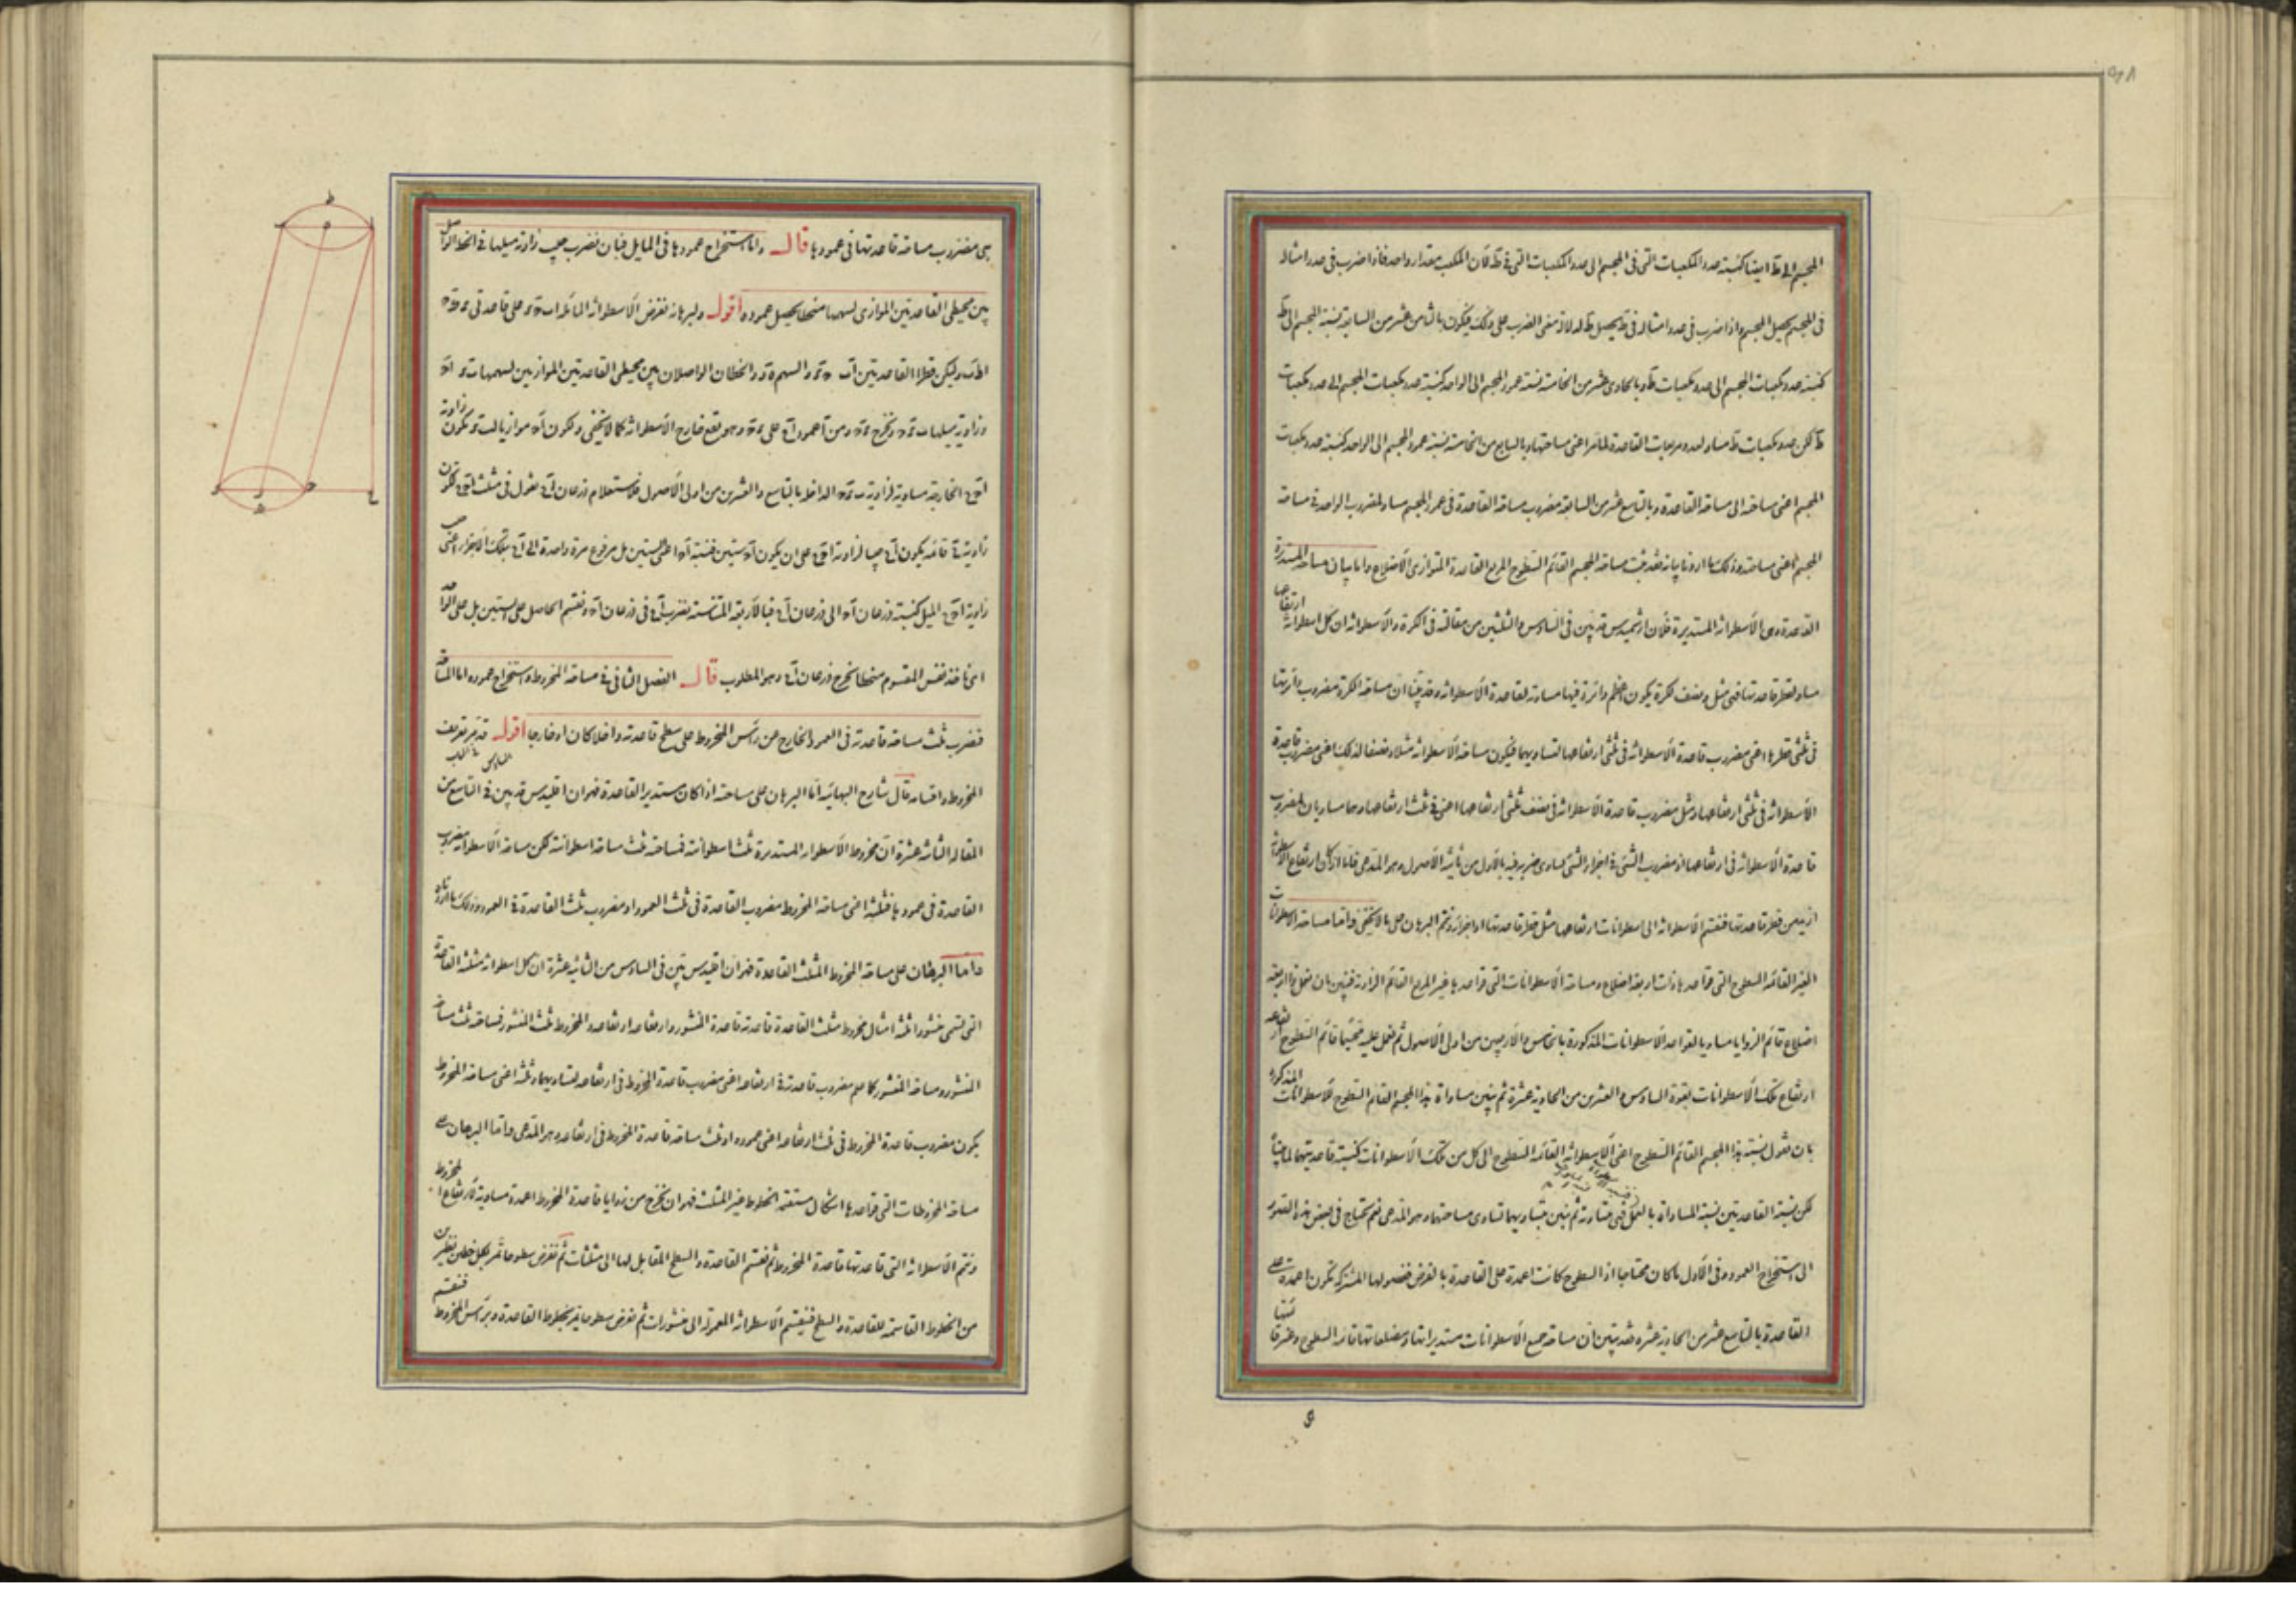 المجسم الى ط ايضا كنسبة عدد المكعبات التى فى المجسم الى عدد المكعبات التى فى ط لان المكعب مقدار واحد فاذا ضرب فى عدد امثاله
فى المجسم يحصل المجسم واذا ضرب فى عدد امثاله فى ط يحصل ط له لانه معنى الضرب على ذلك فيكون بالثامن عشر من السابعة نسبة المجسم الى ط
كنسبة عدد مكعبات المجسم الى عدد مكعبات ط وبالحادى عشر من الخامسة نسبة عمود المجسم الى الواحد كنسبة عدد مكعبات المجسم الى عدد مكعبات
ط لكن عدد مكعبات ط مساو لعدد مربعات القاعدة لما مر اعنى مساحتها وبالسابع من الخامسة نسبة عمود المجسم الى الواحد كنسبة عدد مكعبات
المجسم اعنى مساحته الى مساحة القاعدة وبالتاسع عشر من السابعة مضروب مساحة القاعدة فى عمود المجسم مساو لمضروب الواحد فى مساحة
المجسم اعنى مساحته وذلك ما اردنا بيانه فقد ثبت مساحة المجسم القائم السطوح المربع القاعدة المتوازى الاضلاع واما بيان مساحة المستديرة
القاعدة وهى الاسطوانة المستديرة فلان ارشميدس قد بين فى السادس والثلثين من مقالته فى الكرة والاسطوانة ان كل اسطوانة ارتفاعها
مساو لقطر قاعدتها فهى مثل ونصف لكرة يكون اعظم دائرة فيها مساوية لقاعدة الاسطوانة وقد بينا ان مساحة الكرة مضروب دائرتها
فى ثلثى قطرها اعنى مضروب قاعدة الاسطوانة فى ثلثى ارتفاعها لتساويهما فيكون مساحة الاسطوانة مثلا ونصفا لذلك اعنى مضروب قاعدة
الاسطوانة فى ثلثى ارتفاعها ومثل مضروب قاعدة الاسطوانة فى نصف ثلثى ارتفاعها اعنى فى ثلث ارتفاعها وهما مساويان لمضروب
قاعدة الاسطوانة فى ارتفاعها اذ مضروب الشئ فى اجزاء الشئ يساوى ضربه فيه بالاول من ثانية الاصول وهو المدعى فاما اذا كان ارتفاع الاسطوانة
ازيد من قطر قاعدتها فنقسم الاسطوانة الى اسطوانات ارتفاعها مثل قطر قاعدتها او اجزاءه ونتم البرهان على ما لا يخفى واما مساحة الاسطوانات
الغير القائمة السطوح التى قواعدها ذات اربعة اضلاع ومساحة الاسطوانات التى قواعدها غير المربع القائم الزاوية فنبين بان نعمل ذا اربعة
اضلاع قائم الزوايا مساويا لقواعد الاسطوانات المذكورة بالخامس والاربعين من اولى الاصول ثم نعمل عليه مجسما قائم السطوح ارتفاعه
ارتفاع تلك الاسطوانات بقوة السادس والعشرين من الحادية عشرة ثم نبين مساواة هذا المجسم القائم السطوح للاسطوانات المذكورة
بان نقول نسبة هذا المجسم القائم السطوح اعنى الاسطوانة القائمة السطوح الى كل من تلك الاسطوانات كنسبة قاعدتيهما
لكن نسبة القاعدتين نسبة المساواة بالعمل فهى متساوية ثم نبين بتساويهما تساوى مساحتهما وهو المدعى نعم نحتاج فى بعض هذه الصور
الى استخراج العمود وفى الاول ما كان محتاجا اذ السطوح كانت اعمدة على القاعدة بالفرض ففصولها المشتركة تكون اعمدة على
القاعدة بالتاسع عشر من الحادية عشرة فقد تبين ان مساحة جميع الاسطوانات مستديراتها ومضلعاتها قائمة السطوح وغيرها
هى مضروب مساحة قاعدتها فى عمودها قال واما استخراج عمودها فى المايل فبان نضرب جيب زاوية ميلها فى الخط الواصل
بين محيطى القاعدتين الموازى لسهمها منحطا يحصل عموده اقول وليرهانه نفرض الاسطوانة المائلة على قاعدتى
وليكن قطرا القاعدتين والسهم والخطان الواصلان بين محيطى القاعدتين الموازيين لسهمها
وزاوية ميلها ونخرج ومن ا عمود على وهو يقع خارج الاسطوانة كما لا يخفى ولكون موازيا يكون زاوية
الخارجة مساوية لزاوية الداخلة بالتاسع والعشرين من اولى الاصول فلاستعلام ذرعان نقول فى مثلث لكون
زاوية قائمة يكون جيبا لزاوية على ان يكون ستين فنسبة اعنى الستين بل مرفوع مرة واحدة الى بتلك الاجزاء اعنى جيب
زاوية الميل كنسبة ذرعان الى ذرعان فبالاربعة المتناسبة نضرب فى ذرعان ونقسم الحاصل على الستين بل على الواحد
اى ناخذ نفس المقسوم منحطا يخرج ذرعان وهو المطلوب قال الفصل الثانى فى مساحة المخروط واستخراج عموده اما المساحة
فنضرب ثلث مساحة قاعدته فى العمود الخارج من رأس المخروط على سطح قاعدته داخلا كان او خارجا اقول قد مر تعريف
المخروط واقسامه قال شارح البهائية اما البرهان على مساحته اذا كان مستدير القاعدة فهو ان اقليدس قد بين فى التاسع من
المقالة الثانية عشرة ان مخروط الاسطوانة المستديرة ثلث اسطوانته فمساحته ثلث مساحة اسطوانته لكن مساحة الاسطوانة مضروب
القاعدة فى عمودها فثلثه اعنى مساحة المخروط مضروب القاعدة فى ثلث العمود او مضروب ثلث القاعدة فى العمود وذلك ما اردناه
واما البرهان على مساحة المخروط المثلث القاعدة فهو ان اقليدس بين فى السادس من الثانية عشرة ان كل اسطوانة مثلثة القاعدة
التى تسمى منشورا ثلثة امثال مخروط مثلث القاعدة قاعدته قاعدة المنشور وارتفاعه ارتفاعه والمخروط ثلث المنشور فمساحته ثلث مساحة
المنشور ومساحة المنشور كما علم مضروب قاعدته فى ارتفاعه اعنى مضروب قاعدة المخروط فى ارتفاعه لتساويهما وثلثه اعنى مساحة المخروط
يكون مضروب قاعدة المخروط فى ثلث ارتفاعه اعنى عموده او ثلث مساحة قاعدة المخروط فى ارتفاعه وهو المدعى واما البرهان على
مساحة المخروطات التى قواعدها اشكال مستقيمة الخطوط غير المثلث فهو ان نخرج من زوايا قاعدة المخروط اعمدة مساوية لارتفاع المخروط
ونتم الاسطوانة التى قاعدتها قاعدة المخروط ثم نقسم القاعدة والسطح المقابل لها الى مثلثات ثم نفرض سطوحا تمر بكل خطين نظيرين
من الخطوط القاسمة للقاعدة والسطح فينقسم الاسطوانة المعمولة الى منشورات ثم نفرض سطوحا تمر بخطوط القاعدة وبرأس المخروط فنقسم